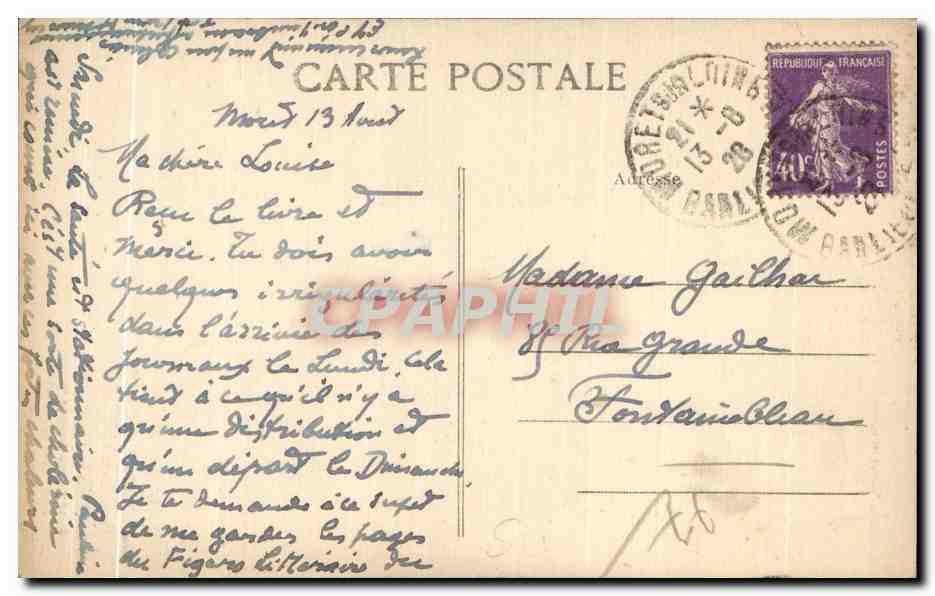 CARTE POSTALE
Moret 13 Aout
Ma chère Louise
Reçu le livre et
merci. Tu dois avoir
quelques irrégularités
dans l'arrivée des
journaux le Lundi. Cela
tient à ce qu'il n'y a
qu'une distribution et
qu'un départ le Dimanche
Je te demande à ce sujet
de me garder les pages
du Figaro littéraire du
Samedi. La santé est stationnaire. Pauline
est remise. C'est une sorte de cholérine
chaleurs
Adresse
Madame Gailhac
85 Rue Grande
Fontainebleau
RÉPUBLIQUE FRANÇAISE
40c
POSTES
MORET SUR LOING
21
13 -8
26
CPAPHIL